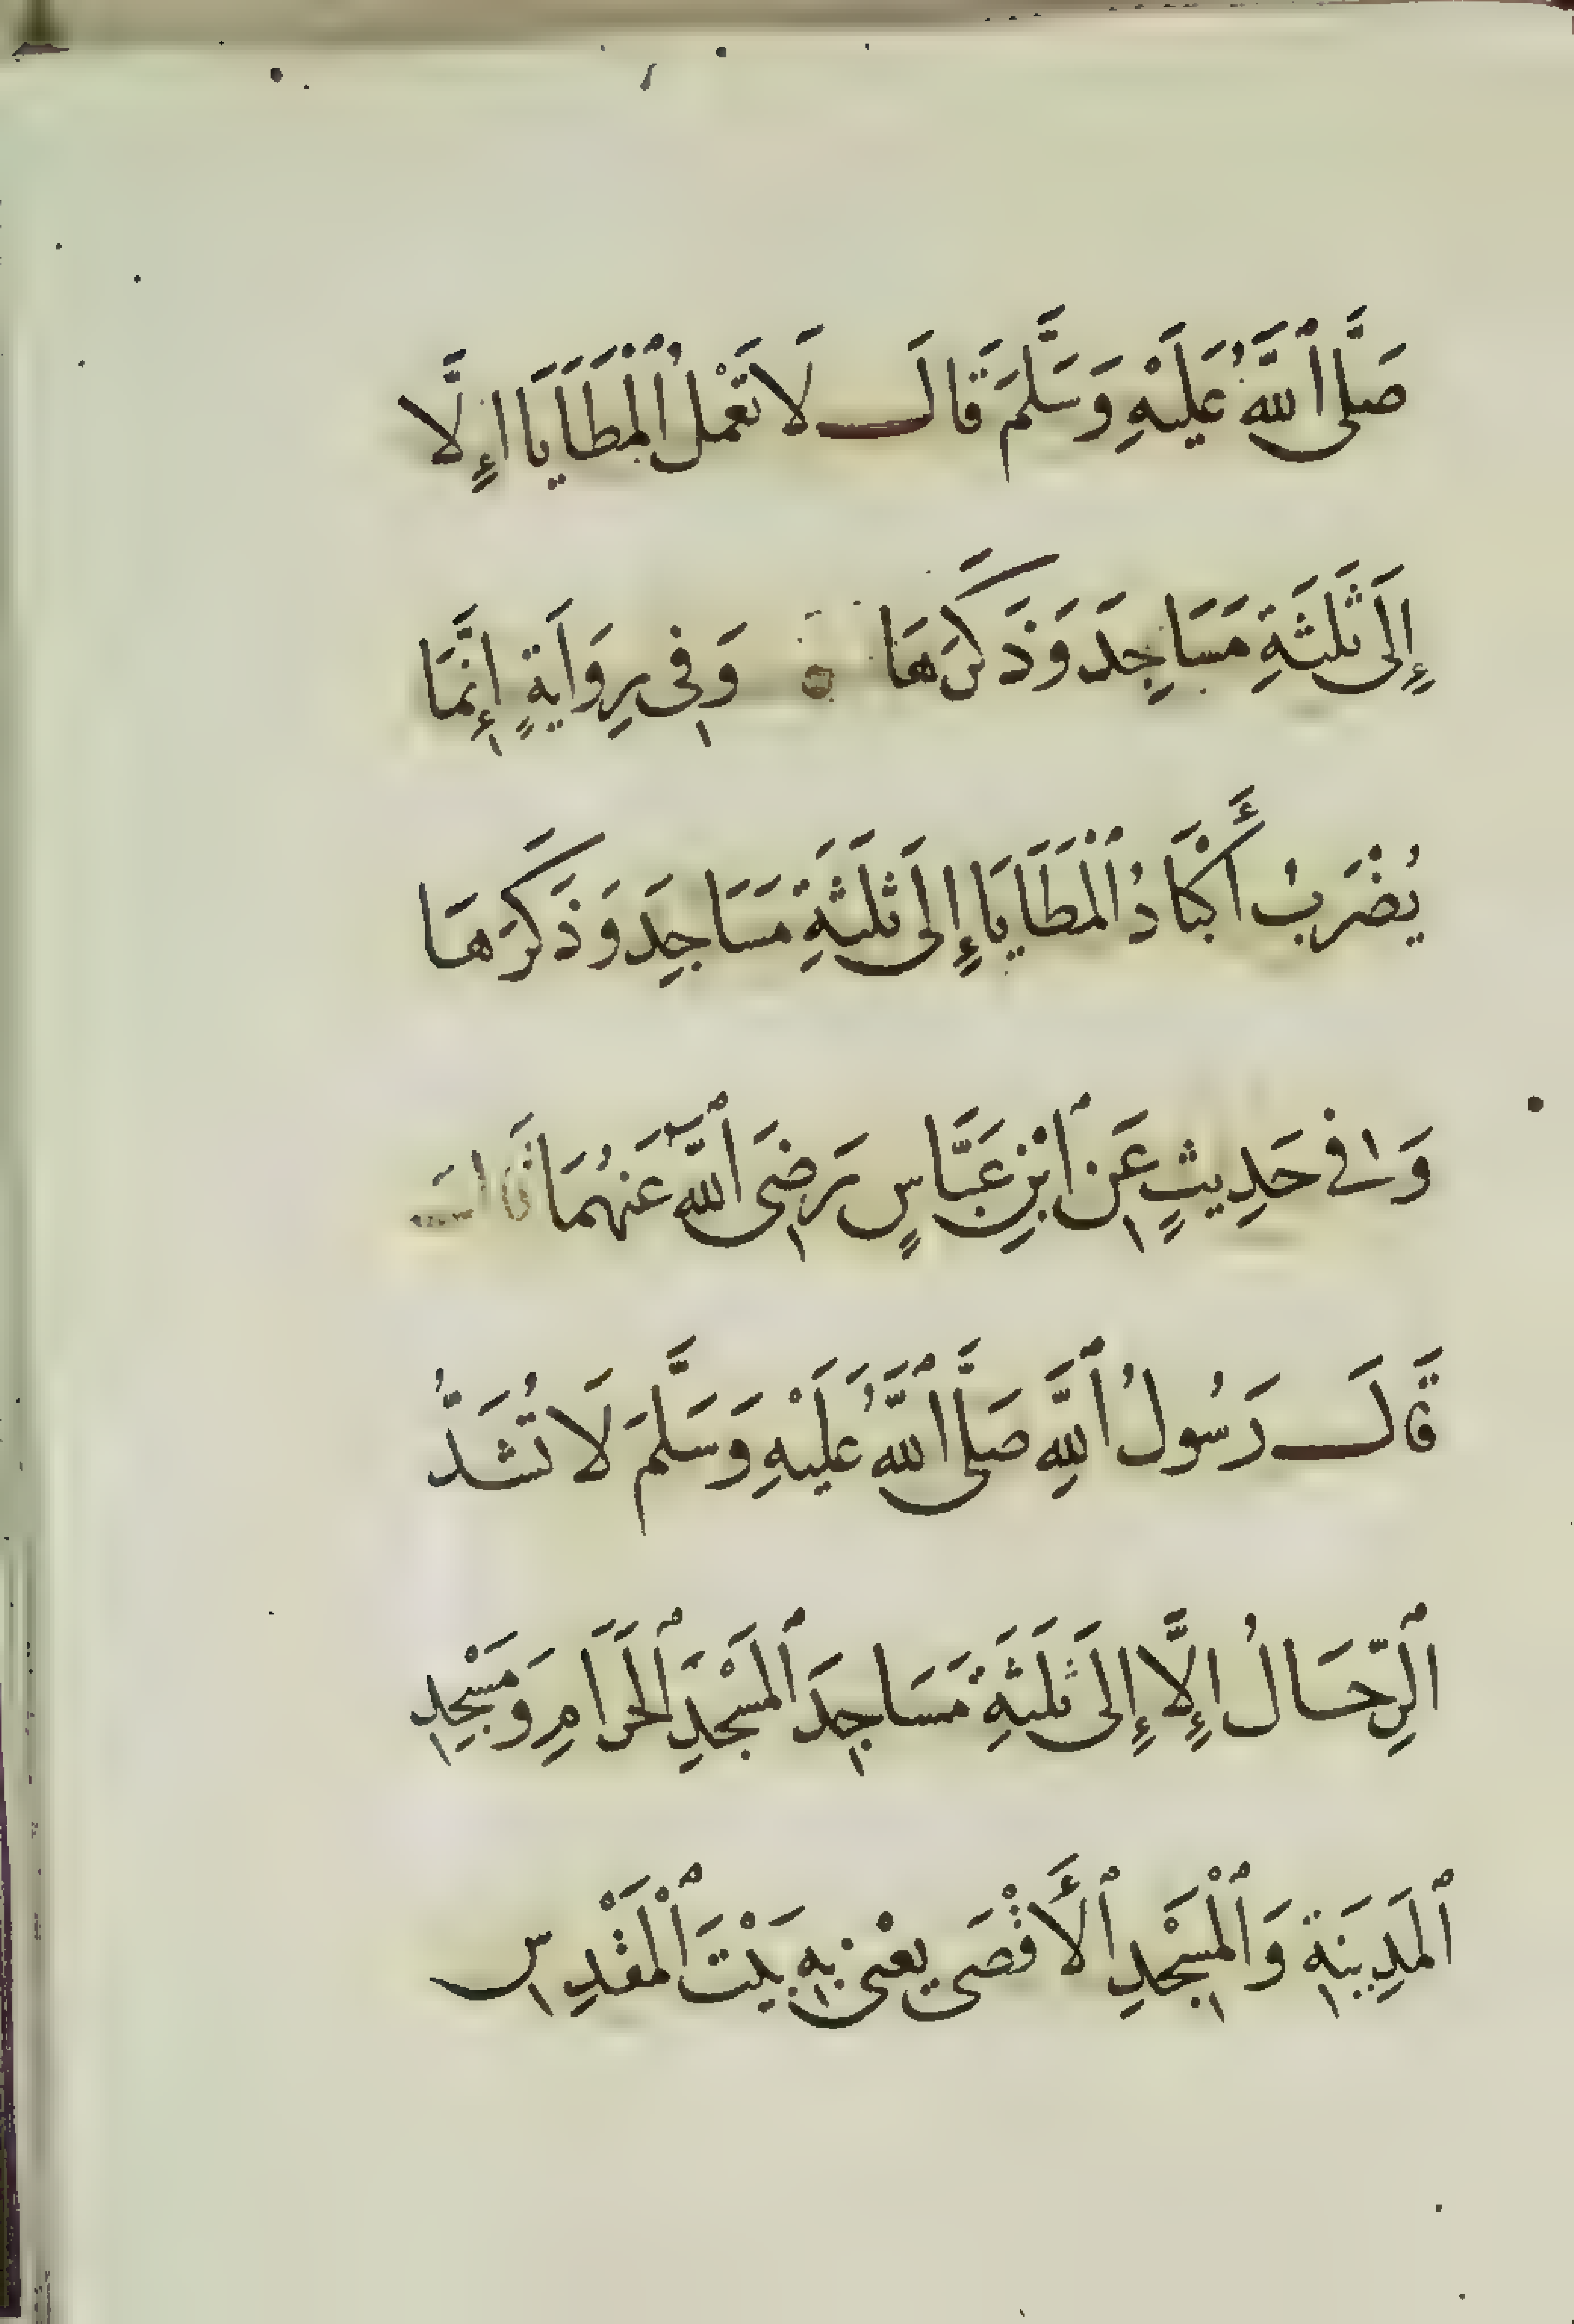 صَلَّى ٱللَّهُ عَلَيْهِ وَسَلَّمَ قَالَ لَا تَعْمَلُ ٱلْمَطَايَا إِلَّا
إِلَى ثَلَثَةِ مَسَاجِدَ وَذَكَرَهَا وَفِى رِوَايَةٍ إِنَّمَا
يُضْرَبُ أَكْبَادُ ٱلْمَطَايَا إِلَى ثَلَثَةِ مَسَاجِدَ وَذَكَرَهَا
وَفِى حَدِيثٍ عَنِ ٱبْنِ عَبَّاسٍ رَضِىَ ٱللَّهُ عَنْهُمَا قَالَ
قَالَ رَسُولُ ٱللَّهِ صَلَّى ٱللَّهُ عَلَيْهِ وَسَلَّمَ لَا تُشَدُّ
ٱلرِّحَالُ إِلَّا إِلَى ثَلَثَةِ مَسَاجِدَ ٱلمَسْجِدِ ٱلحَرَامِ وَمَسْجِدِ
ٱلمَدِينَةِ وَٱلْمَسْجِدِ ٱلأَقْصَى يَعْنِى بِهِ بَيْتَ ٱلْمَقْدِسِ